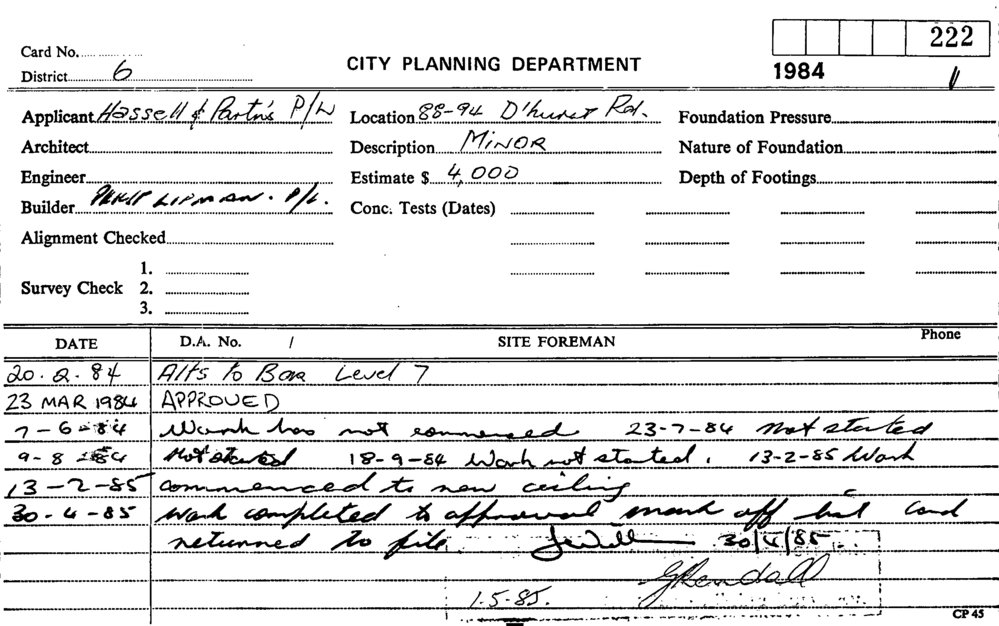 Card No.
222
CITY PLANNING DEPARTMENT
District 6
1984
Applicant Hassell & Partn's P/L Location 88-94 D'hurst Rd. Foundation Pressure
Architect Description MINOR Nature of Foundation
Engineer Estimate $ 4,000 Depth of Footings
Builder LIPMAN. P/L. Conc. Tests (Dates)
Alignment Checked
1.
Survey Check 2.
3.
DATE D.A. No. / SITE FOREMAN Phone
20.2.84 Alts to Level 7
23 MAR 1984 APPROVED
7-6-84 Work has not commenced 23-7-84 Not started
9-8-84 Not started 18-9-84 Work not started. 13-2-85 Work
13-2-85 commenced to new ceiling
30-4-85 Work completed to approval mark off list Card
returned to file 30/4/85.
GKendall
1.5.85.
CP 45